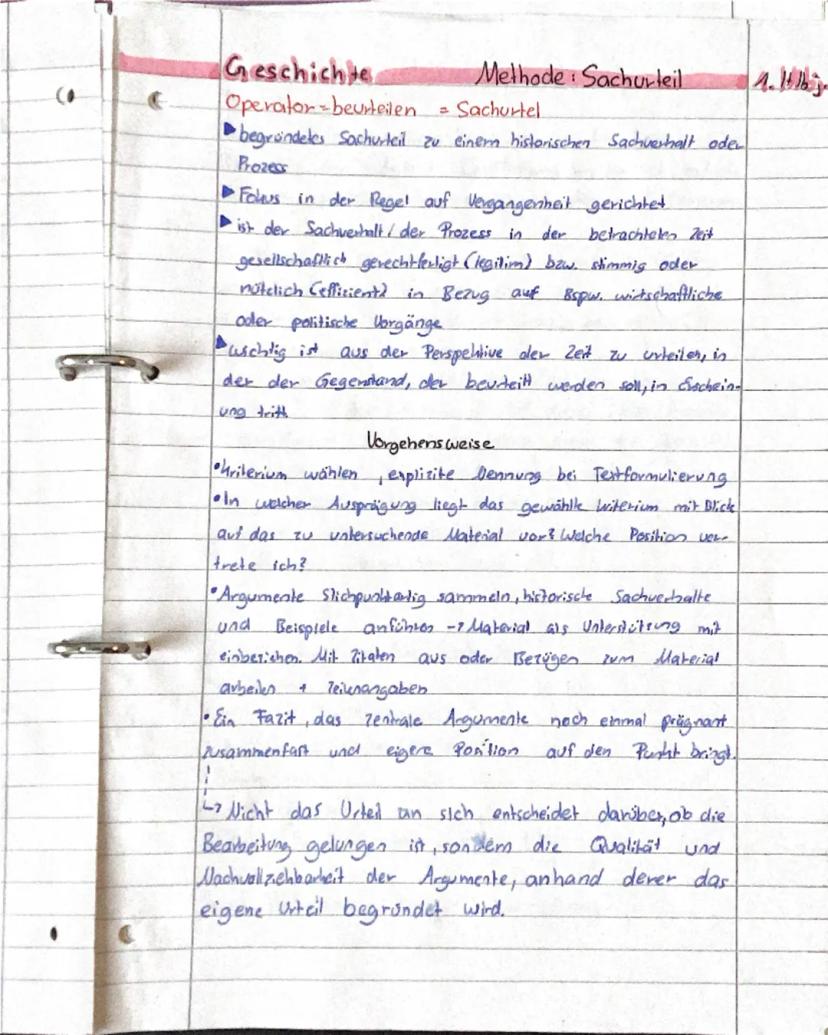 Geschichte Methode: Sachurteil 1. Hlbj.
Operator = beurteilen = Sachurtel
▶ begründetes Sachurteil zu einem historischen Sachverhalt oder
Prozess
▶ Fokus in der Regel auf Vergangenheit gerichtet
▶ ist der Sachverhalt / der Prozess in der betrachteten Zeit
gesellschaftlich gerechtfertigt (legitim) bzw. stimmig oder
nützlich (effizient) in Bezug auf Bspw. wirtschaftliche
oder politische Vorgänge
▶ wichtig ist aus der Perspektive der Zeit zu urteilen, in
der der Gegenstand, der beurteilt werden soll, in Erschein-
ung tritt
Vorgehensweise
• Kriterium wählen, explizite Nennung bei Textformulierung
• In welcher Ausprägung liegt das gewählte Kriterium mit Blick
auf das zu untersuchende Material vor? Welche Position ver-
trete ich?
• Argumente Stichpunktartig sammeln, historische Sachverhalte
und Beispiele anführen -> Material als Unterstützung mit
einbeziehen. Mit Zitaten aus oder Bezügen zum Material
arbeiten + Zeilenangaben
• Ein Fazit, das zentrale Argumente noch einmal prägnant
zusammenfast und eigene Position auf den Punkt bringt.
↳ Nicht das Urteil an sich entscheidet darüber, ob die
Bearbeitung gelungen ist, sondern die Qualität und
Nachvollziehbarkeit der Argumente, anhand derer das
eigene Urteil begründet wird.